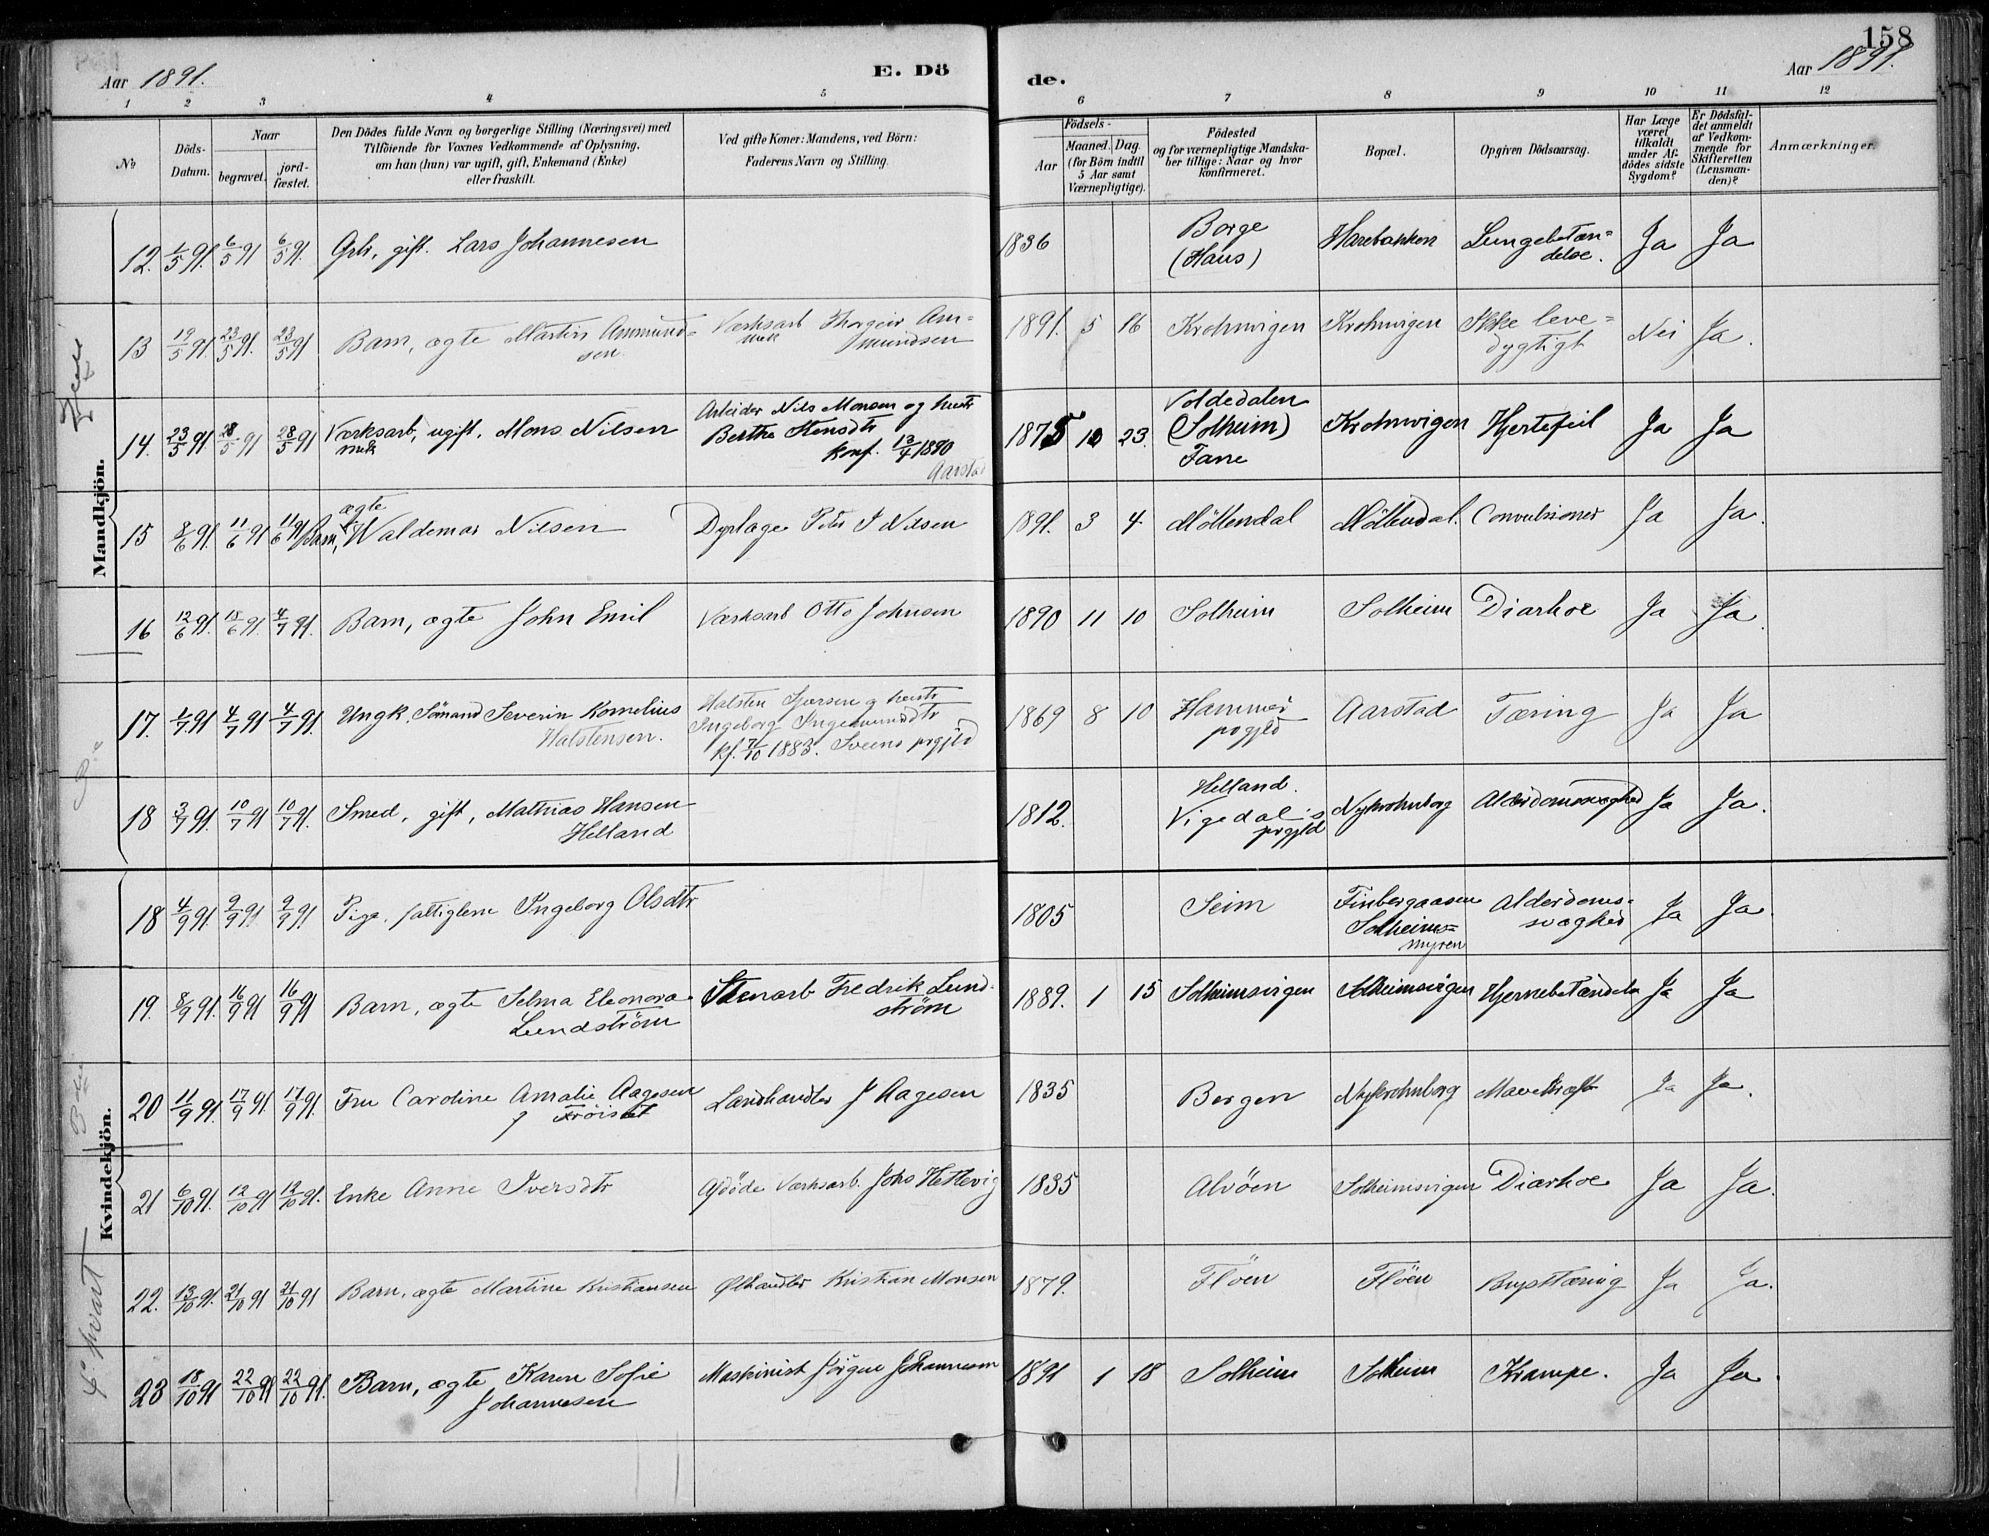 158
Aar 1891.
E. Dö
de.
Aar 1891.
1 2 3 4 5 6 7 8 9 10 11 12
No
Döds-Datum.
Naar
begravet.
jord-fæstet.
Den Dödes fulde Navn og borgerlige Stilling (Næringsvei) med
Tilföiende for Voxnes Vedkommende af Oplysning,
om han (hun) var ugift, gift, Enkemand (Enke)
eller fraskilt.
Ved gifte Koner: Mandens, ved Börn:
Faderens Navn og Stilling.
Födsels-
Aar
Maaned. Dag
(for Börn indtil
5 Aar samt
Værnepligtige).
Födested
og for værnepligtige Mandska-
ber tillige: Naar og hvor
konfirmeret.
Bopæl.
Opgiven Dödsaarsag.
Har Læge
været
tilkaldt
under Af-
dödes sidste
Sygdom?
Er Dödsfal-
det anmeldt
af Vedkom-
mende for
Skifteretten
(Lensman-
den)?
Anmærkninger.
Mandkjön.
12. 1/5 91. 6/5 91 6/5 91. Arb, gift. Lars Johannesen 1836 Borge (Haus) Harebakken Lungebetæn=delse. Ja Ja
13 19/5 91. 23/5 91. 23/5 91 Barn, ægte Martin Ammund=sen. Værksarb Thorgeir Am=mundsen 1891. 5 16 Krohnvigen Krohnvigen Ikke leve=dygtigt Nei Ja.
14. 23/5 91. 28/5 91 28/5 91 Værksarb, ugift. Mons Nilsen Arbeider Nils Monsen og hustr Berthe Hansdtr konf. 13/4 1890 Aarstad 1875 10 23. Voldedalen (Solheim) Fane Krohnvigen Hjertefeil Ja Ja
15 8/6 91. 11/6 91 11/6 91 Barn, ægte Waldemar Nilsen Dyrlæge Peter J Nilsen 1891. 3 4. Möllendal Möllendal. Convulsioner Ja Ja.
16 12/6 91. 18/6 91. 4/7 91. Barn, ægte John Emil Værksarb Otto Johnsen 1890 11 10 Solheim Solheim Diarhoe Ja Ja.
17. 1/7 91 4/7 91 4/7 91. Ungk. Sömand Severin Kornelius Halstensen. Halsten Sjursen og hustr Ingeborg Ingemundsdtr kf. 7/10 1883. Sveens prgjld 1869 8 10 Hammer prgjld Aarstad Tæring Ja Ja
18 3/7 91. 10/7 91 10/7 91. Smed, gift, Mathias Hansen Helland 1812. Helland. Vigedal's prgjld Nykrohnborg Alderdomssvaghed Ja Ja.
Kvindekjön.
18 4/9 91. 9/9 91 9/9 91 Pige, fattiglem Ingeborg Olsdtr 1805 Seim Finbergaasen Solheims=myren Alderdoms=svaghed Ja Ja.
19. 8/9 91. 16/9 91 16/9 91 Barn, ægte Selma Eleonora Lundström Stenarb Fredrik Lund=ström 1889. 1 15 Solheimsvigen Solheimsvigen Hjernebetændelse Ja Ja
20 11/9 91. 17/9 91. 17/9 91. Fru Caroline Amalie Aagesen f Landhandler J Aagesen 1835 Bergen Nykrohnborg Mavekræft Ja Ja.
21 6/10 91. 12/10 91 12/10 91. Enke Anne Iversdtr Afdöde Værksarb. Johs Hetlevig 1835 Alvöen Solheimsvigen Diarhoe Ja Ja.
22. 13/10 91. 21/10 91 21/10 91 Barn, ægte Martine Kristiansen Ølhandler Kristian Monsen 1879. Flöen Flöen Brysttæring Ja Ja.
23 18/10 91 22/10 91 22/10 91. Barn, ægte Karen Sofie Johannesen Maskinist Jörgen Johannesen 1891 1 18 Solheim Solheim Krampe. Ja Ja.